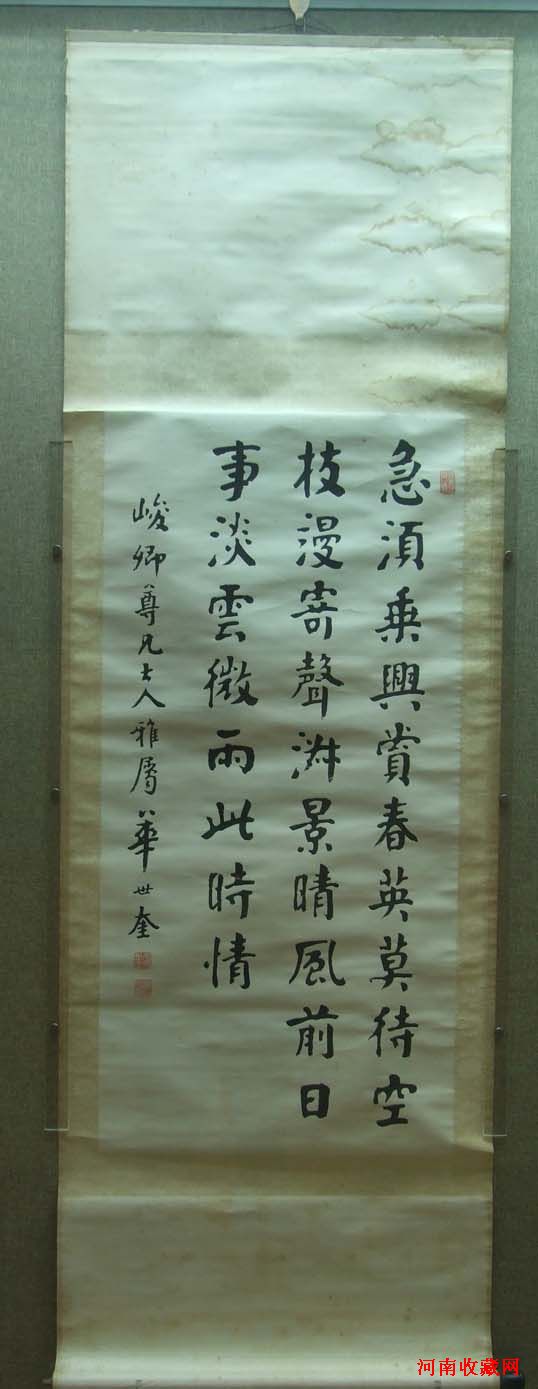 急須乘興賞春英莫待空
枝漫寄聲淑景晴風前日
事淡雲微雨此時情
峻卿尊兄大人雅屬 華世奎
河南收藏网